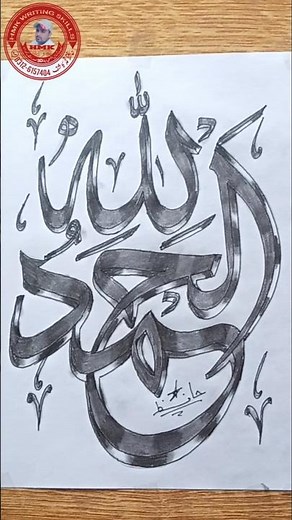 HMK WRITING SKILLS
HMK
0312-6157404
الحَمْدُ لِلّٰه
حافظ